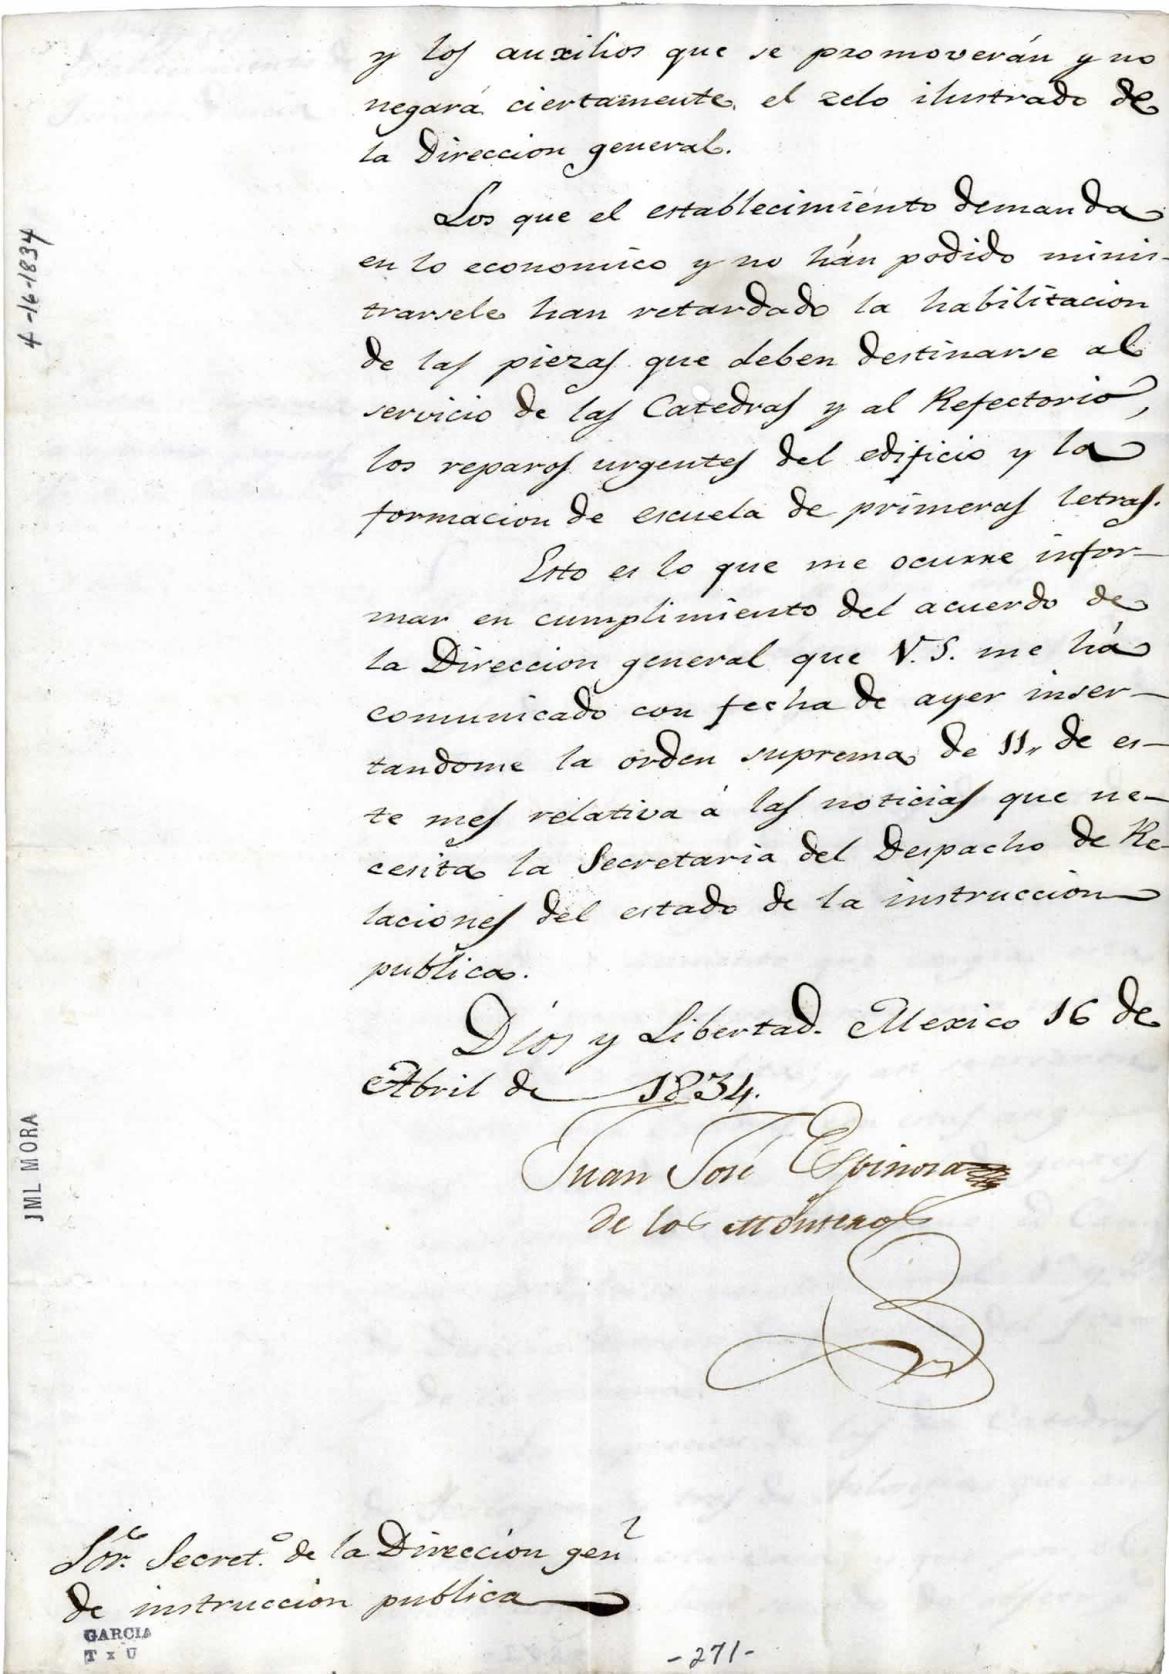 y los auxilios que se promoverán y no
negará ciertamente, el zelo ilustrado de
la Direccion general.
Los que el establecimiento demanda
en lo economico y no hán podido minis-
trarsele han retardado la habilitacion
de las piezas que deben destinarse al
servicio de las Catedras y al Refectorio,
los reparos urgentes del edificio y la
formacion de escuela de primeras letras.
Esto es lo que me ocurre infor-
mar en cumplimiento del acuerdo de
la Direccion general que V.S. me há
comunicado con fecha de ayer inser-
tandome la orden suprema de 11,, de es-
te mes relativa á las noticias que ne-
cesita la Secretaria del Despacho de Re-
laciones del estado de la instruccion
publica.
Dios y Libertad. Mexico 16 de
Abril de 1834.
Juan José Espinosa
de los Monteros
Sōr. Secret.º de la Dirección gen.l
de instruccion publica
GARCIA
T x U
-271-
4-16-1834
JML MORA